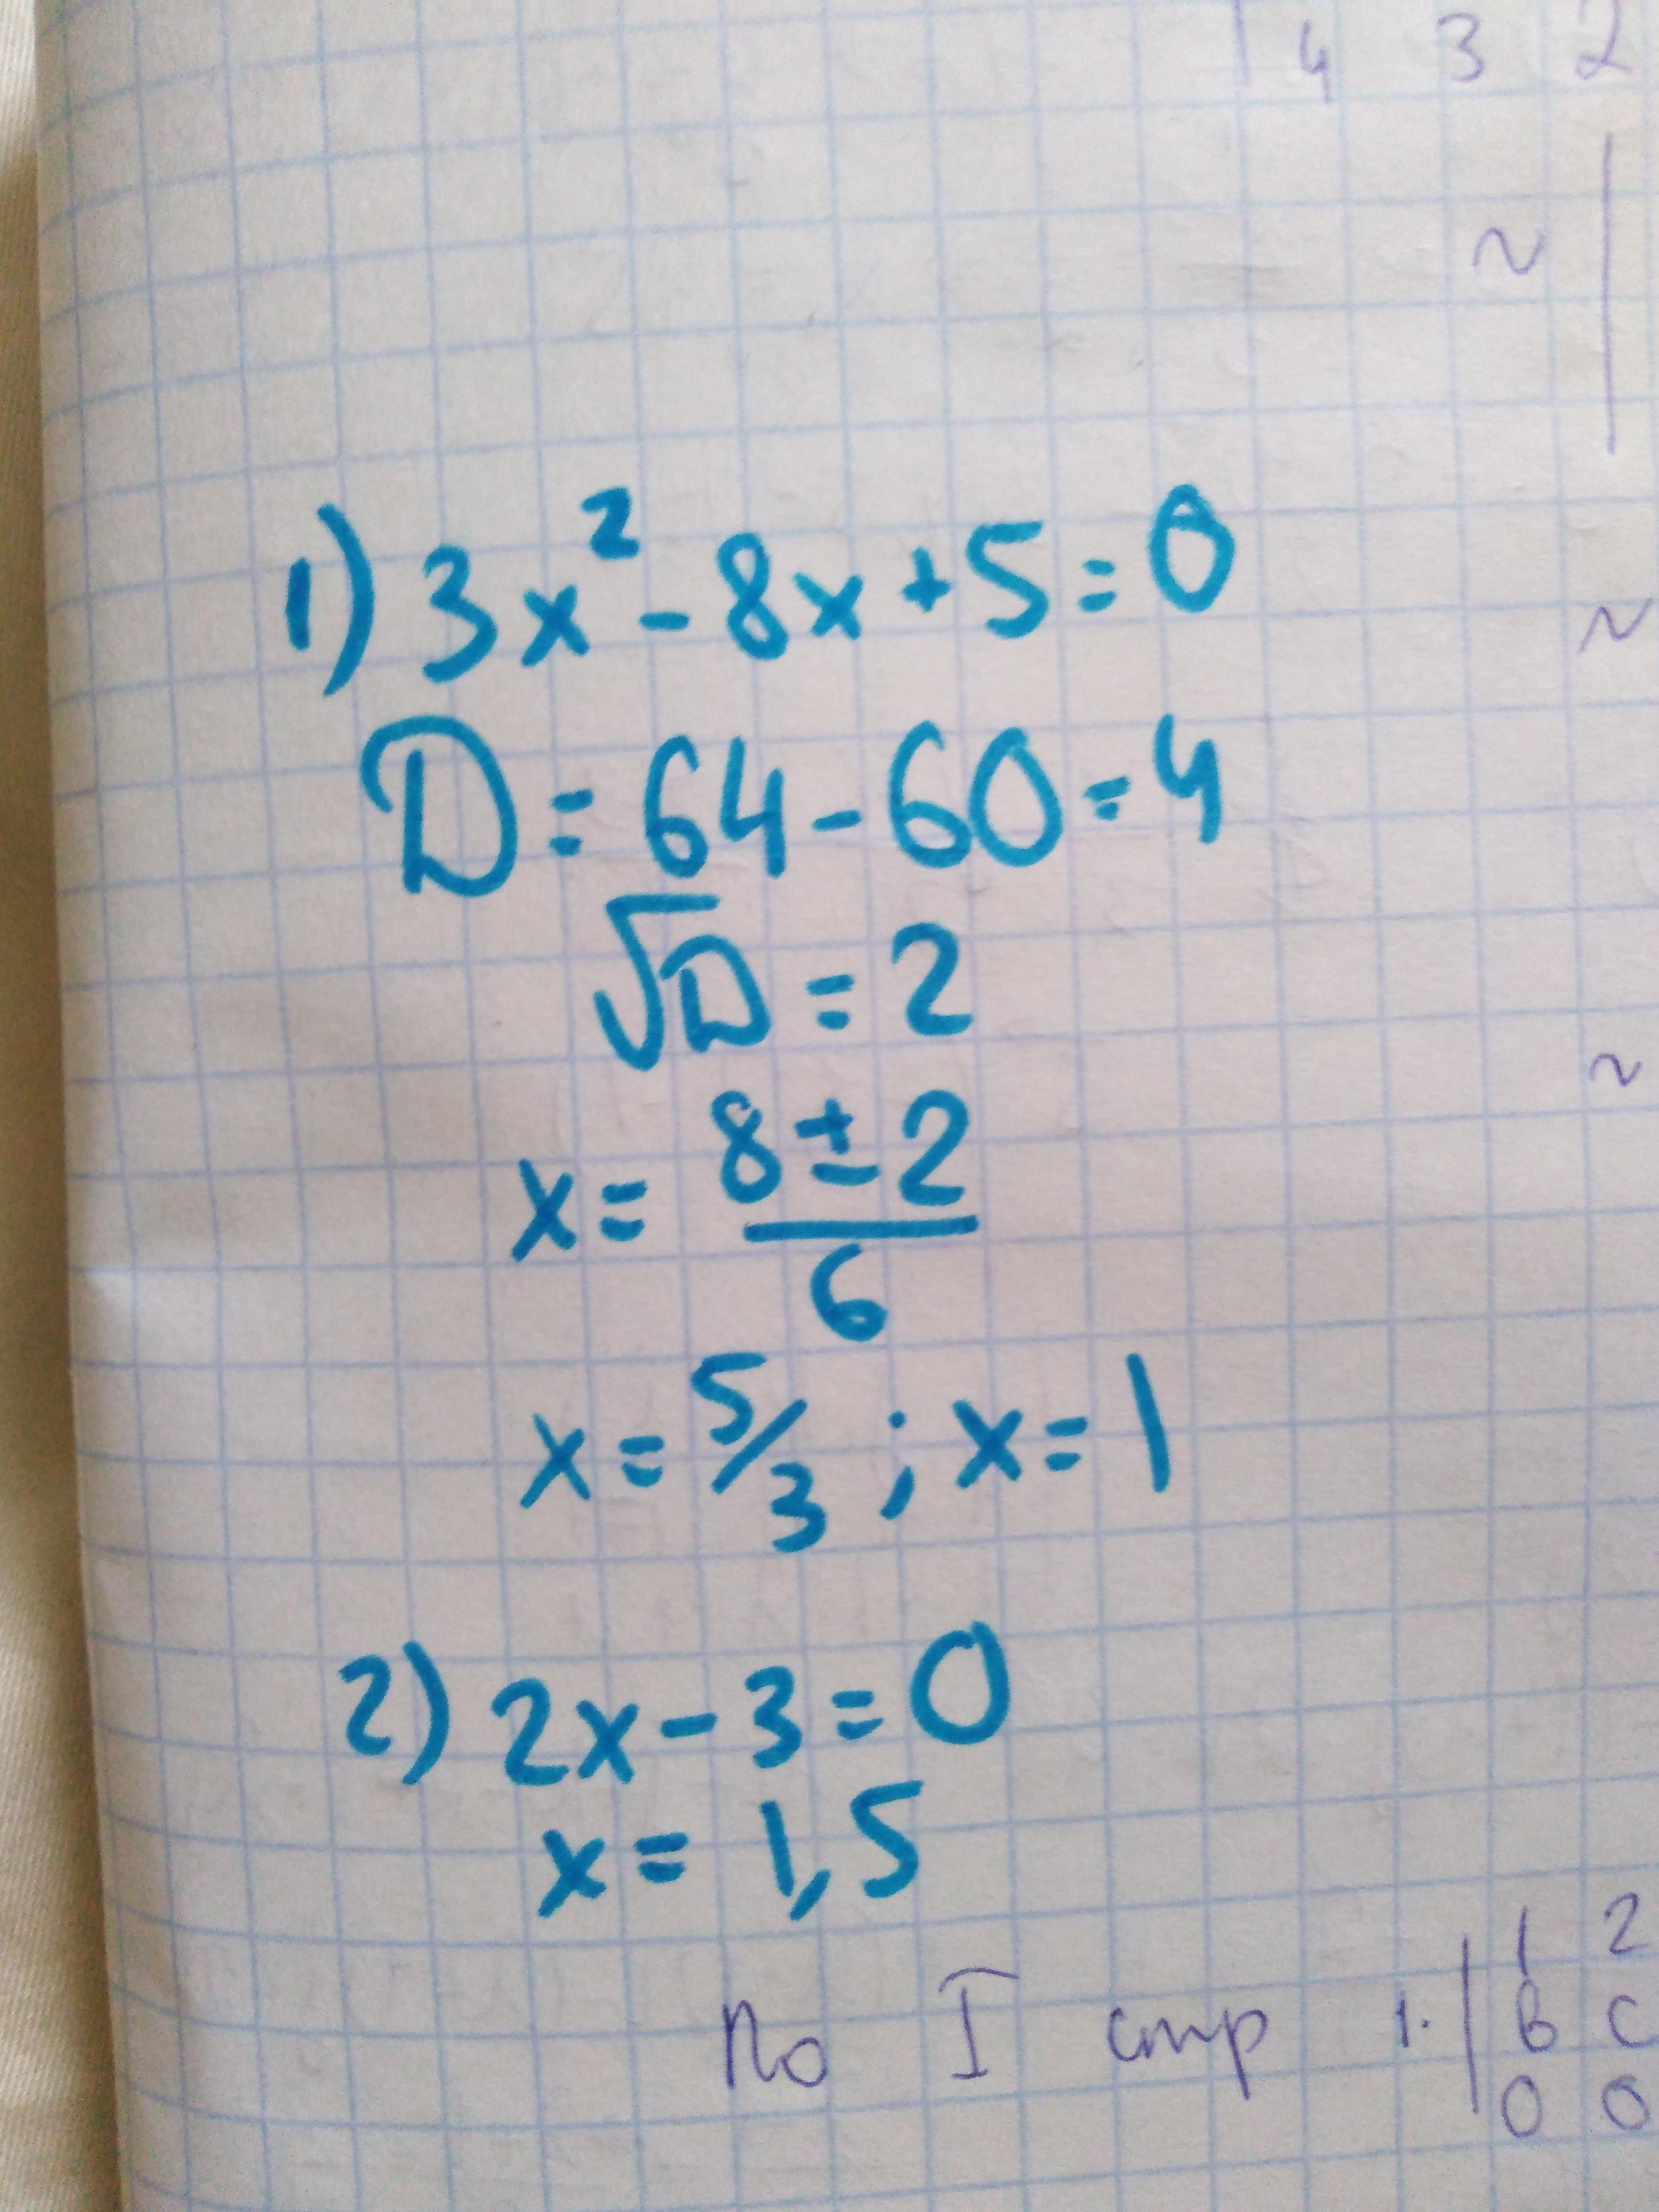 4 3 2
~
1) 3x² - 8x + 5 = 0
~
D = 64 - 60 = 4
√D = 2
~
x = (8 ± 2)/6
x = 5/3 ; x = 1
2) 2x - 3 = 0
x = 1,5
1 2
по I стр 1. | в с
0 0